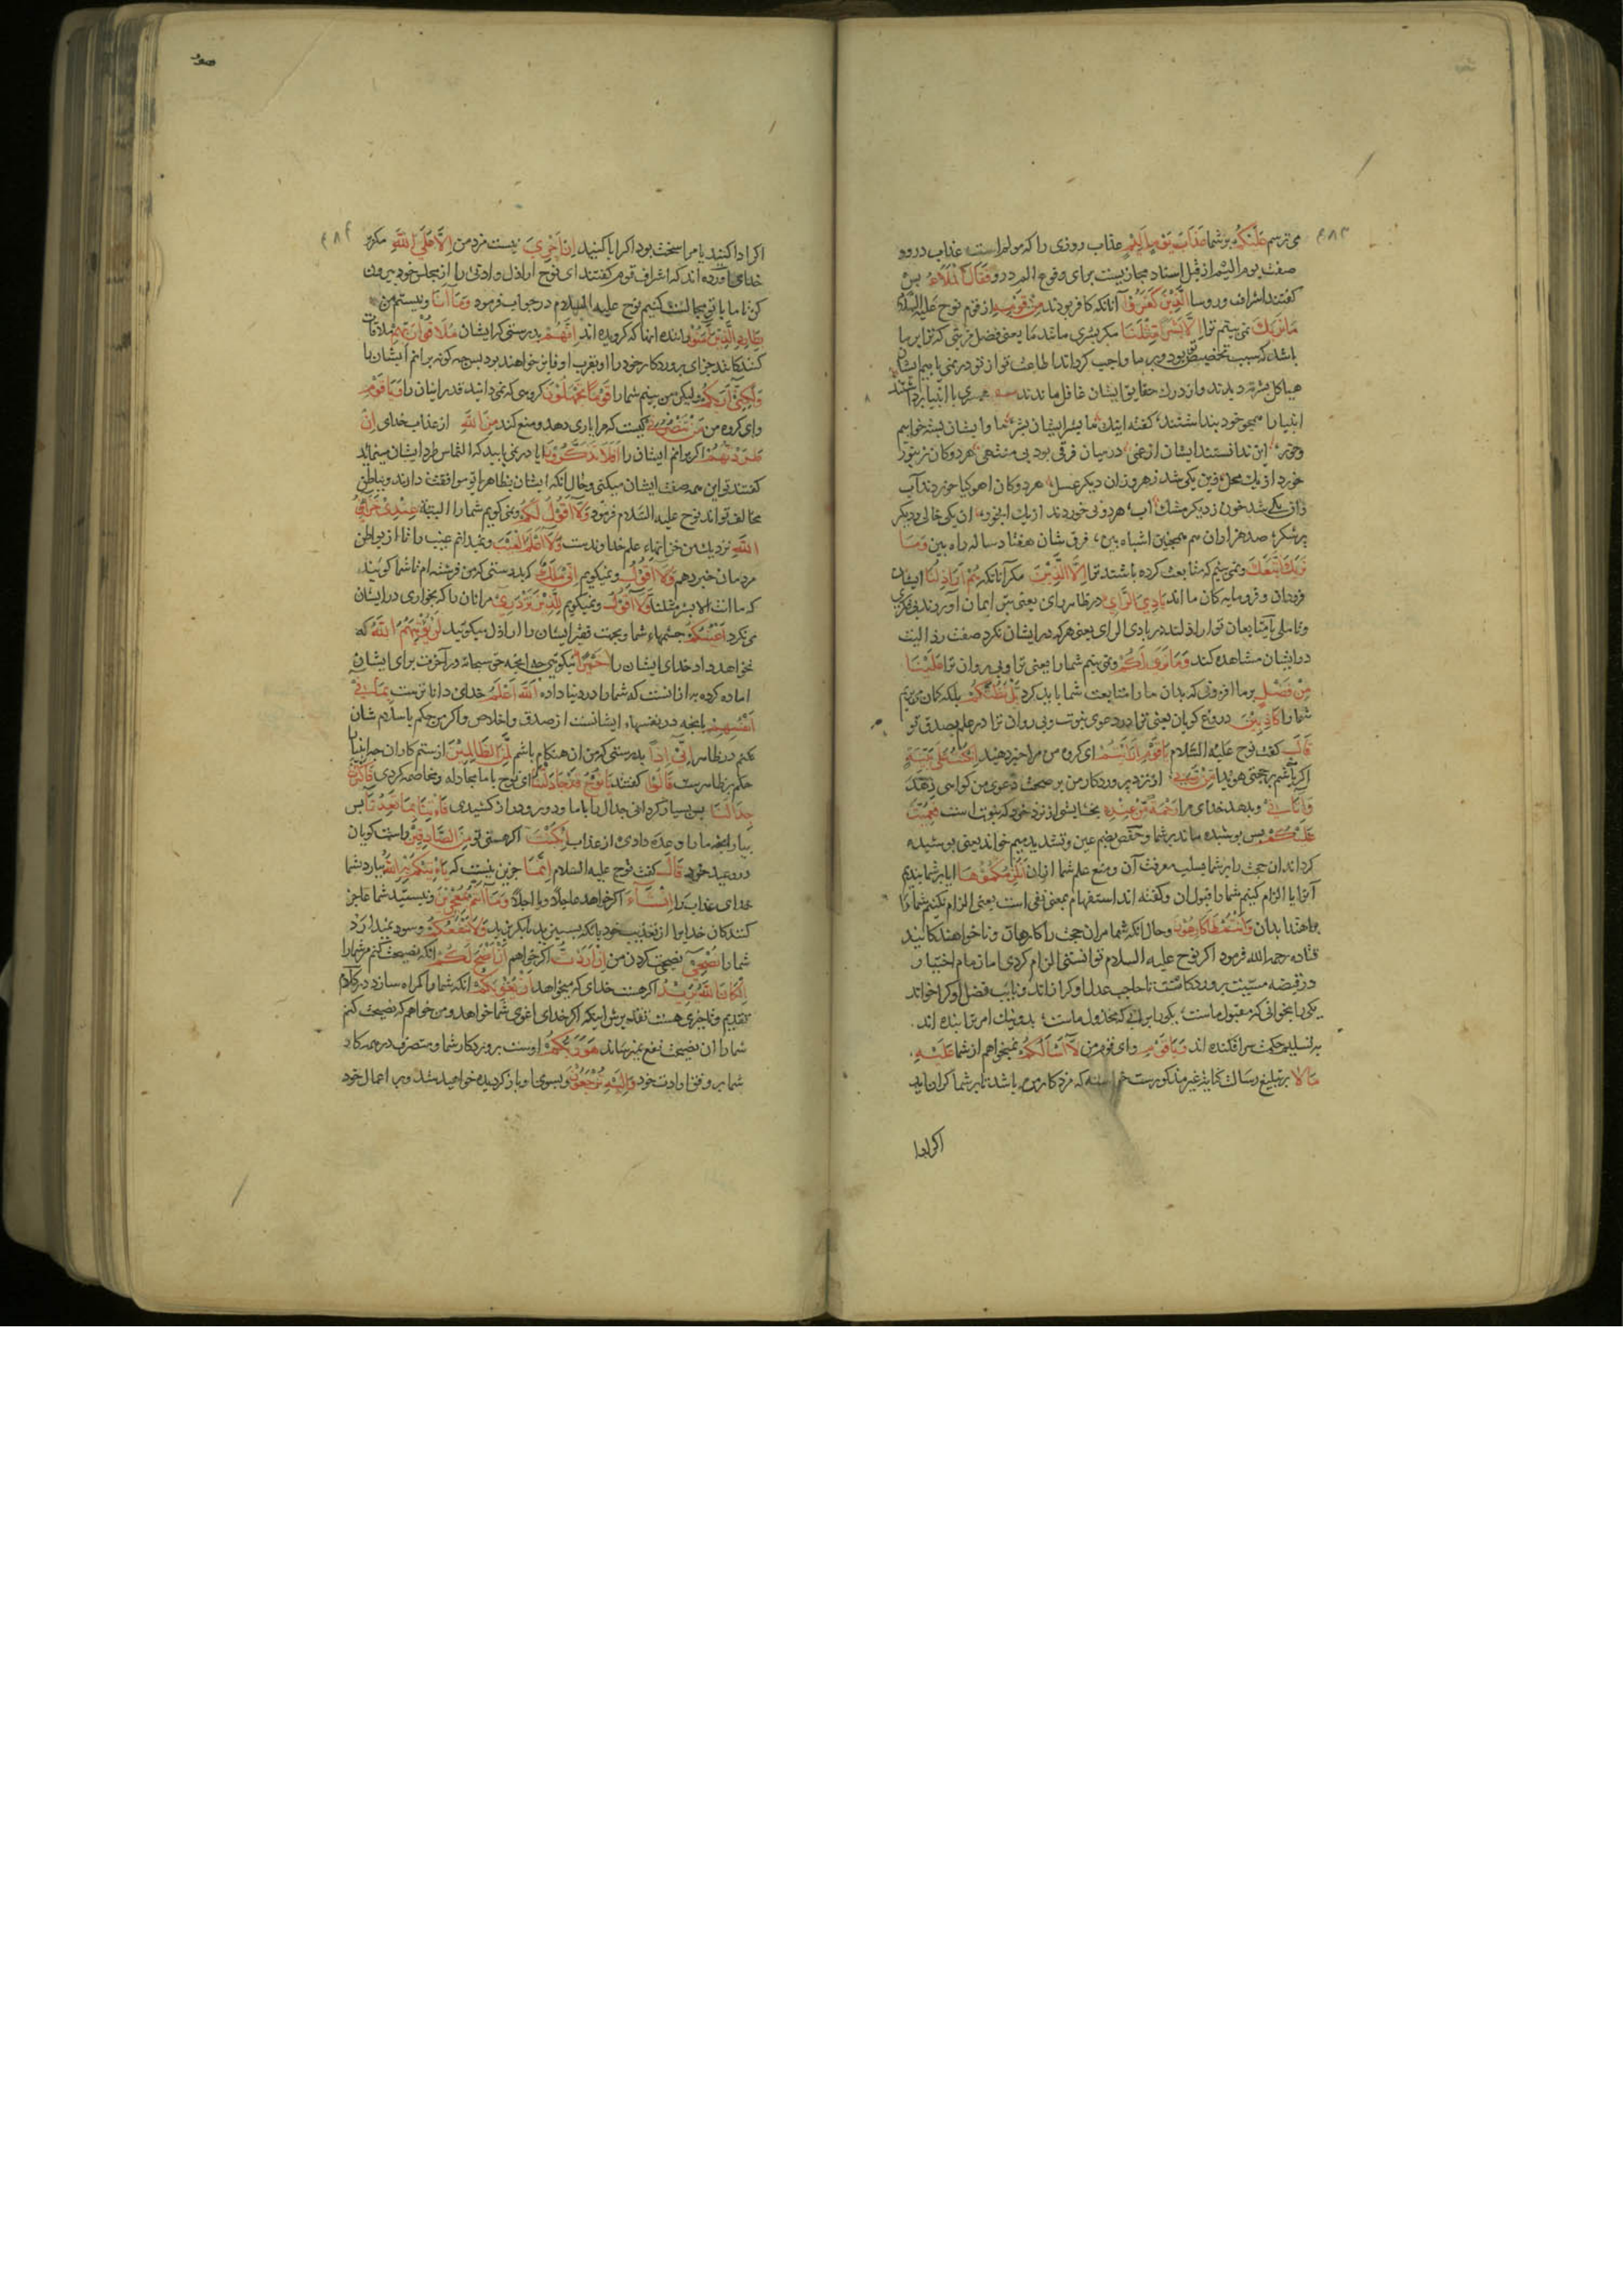 ۴۸۳
می ترسم عَلَیْکُمْ بر شما عَذَابَ یَوْمٍ اَلِیْمٍ عذاب روزی را که مولم است عذاب در وو
صفت یوم الیم از قبل اسناد مجازیست برای وقوع الم در و فَقَالَ الْمَلَاءُ پس
کفتند اشراف و روسا الَّذِیْنَ کَفَرُوْا آنانکه کافر بودند مِنْ قَوْمِهٖ از قوم نوح علیه السلام
مَا نَرٰیکَ نمی بینیم ترا اِلَّا بَشَرًا مِثْلَنَا مکر بشری مانند ما یعنی فضل مزیتی که ترا بر ما
باشد که سبب تخصیص تو بود و بر ما واجب کرداند اطاعت ترا از تو در نمی یابیم ایشان
هیاکل بشر دیدند و از درک حقایق ایشان غافل ماندند همسری با انبیا برداشتند
انبیا را همچو خود پنداشتند کفته اینک ما بشر ایشان بشر ما و ایشان بسته خوابیم
و خور این ندانستند ایشان از عمی در میان فرقی بود بی منتهی هر دو کان زنبور
خورد از یک محل لیک یکی شد زهر و زان دیکر عسل هر دو کان اهو کیا خوردند آب
زان یکی شد خون ز دیکر مشک ناب هر دو نی خوردند از یک ابخور ان یکی خالی و دیکر
پر شکر صد هزاران هم همچنین اشباه بین فرق شان هفتاد ساله راه بین وَمَا
نَرٰیکَ اتَّبَعَکَ و نمی بینیم که متابعت کرده باشند ترا اِلَّا الَّذِیْنَ مکر آنانکه هُمْ اَرَاذِلُنَا ایشان
فرودان و فرومایه کان ما اند بَادِیَ الرَّایِ در ظاهر رای یعنی بی
و تاملی یا متابعان تو اراذلند در بادی الرای یعنی هر که در ایشان نکرد صفت رذالت
در ایشان مشاهده کند وَمَا نَرٰی لَکُمْ و نمی بینیم شما را یعنی ترا و پی روان ترا عَلَیْنَا
مِنْ فَضْلٍ بر ما افزونی که بدان ما را متابعت شما باید کرد بَلْ نَظُنُّکُمْ بلکه کمان می بریم
شما را کَاذِبِیْنَ دروغ کویان یعنی ترا در دعوی نبوت و پی روان ترا در علم بصدق تو
قَالَ کفت نوح علیه السلام یَا قَوْمِ اَرَاَیْتُمْ ای کروه من مرا خبر دهید اِنْ کُنْتُ عَلٰی بَیِّنَةٍ
اکر باشم بر حجتی هویدا مِنْ رَبِّیْ از نزد پروردکار من بر صحت دعوی من کواهی دهد
وَاٰتَانِیْ و بدهد خدای مرا رَحْمَةً مِنْ عِنْدِهٖ بخشایشی از نزد خود که نبوت است فَعُمِّیَتْ
عَلَیْکُمْ پس پوشیده ماند بر شما و حفص بضم عین و تشدید میم خواند یعنی پوشیده
کرداند ان حجت را بر شما بسلب معرفت آن و منع علم شما از ان اَنُلْزِمُکُمُوْهَا ایا بر شما بندیم
آنرا یا الزام کنیم شما را قبول ان و کفته اند استفهام بمعنی نفی است یعنی الزام نکنیم شما را
براهتدا بدان وَاَنْتُمْ لَهَا کَارِهُوْنَ و حال آنکه شما مر ان حجت را کارهان و ناخواهندکانید
قتاده رحمه الله فرمود اکر نوح علیه السلام توانستی الزام کردی اما زمام اختیار
در قبضه مشیت پروردکار است تا حاجب عدل او کرا راند و نایب فضل او کرا خواند
یکی را بخوانی که مقبول ماست یکی را برانی که مخذول ماست بدو نیک امر ترا بنده اند
بر تسلیم حکمت سر افکنده اند وَیَا قَوْمِ و ای قوم من لَا اَسْاَلُکُمْ نمیخواهم از شما عَلَیْهِ
مَالًا بر تبلیغ رسالت کنایه غیر مذکورست خواسته که مزد کار من باشد تا بر شما کران اید
اکر ادا
۴۸۴
اکر ادا کنید یا مرا سخت بود اکر ابا کنید اِنْ اَجْرِیَ نیست مزد من اِلَّا عَلَی اللّٰهِ مکر بر
خدای آورده اند که اشراف قوم کفتند ای نوح اراذل و ادنی را از مجلس خود بیرون
کن تا ما با تو مجالست کنیم نوح علیه السلام در جواب فرمود وَمَا اَنَا و نیستم من
بِطَارِدِ الَّذِیْنَ اٰمَنُوْا راننده انها که کرویده اند اِنَّهُمْ بدرستی که ایشان مُلَاقُوْا رَبِّهِمْ ملاقات
کنندکانند جزای پروردکار خود را و بقرب او فایز خواهند بود پس چه کونه برانم ایشان را
وَلٰکِنِّیْ اَرٰیکُمْ ولیکن من بینم شما را قَوْمًا تَجْهَلُوْنَ کروهی که نمی دانید قدر ایشان را وَیَا قَوْمِ
و ای کروه من مَنْ یَنْصُرُنِیْ کیست که مرا یاری دهد و منع کند مِنَ اللّٰهِ از عذاب خدای اِنْ
طَرَدْتُهُمْ اکر برانم ایشان را اَفَلَا تَذَکَّرُوْنَ ایا در نمی یابید که التماس طرد ایشان مینمائید
کفتند تو این همه صفت ایشان میکنی و حال آنکه ایشان بظاهر با تو موافقت دارند و بباطن
مخالف تواند نوح علیه السلام فرمود وَلَا اَقُوْلُ لَکُمْ و نمی کویم شما را البته عِنْدِیْ خَزَائِنُ
اللّٰهِ نزدیک من خزانهاء علم خداوندست وَلَا اَعْلَمُ الْغَیْبَ و نمیدانم غیب را تا از بواطن
مردمان خبر دهم وَلَا اَقُوْلُ و نمیکویم اِنِّیْ مَلَکٌ که بدرستی که من فرشته ام تا شما کوئید
که ما انت الا بشر مثلنا وَلَا اَقُوْلُ و نمیکویم لِلَّذِیْنَ تَزْدَرِیْ مر انان را که بخواری در ایشان
می نکرد اَعْیُنُکُمْ چشمهاء شما و بجهت فقر ایشان را اراذل میکوئید لَنْ یُؤْتِیَهُمُ اللّٰهُ که
نخواهد داد خدای ایشان را خَیْرًا نیکوئی چه انچه حق سبحانه در آخرت برای ایشان
اماده کرده به از انست که شما را در دنیا داده اَللّٰهُ اَعْلَمُ خدای داناترست بِمَا فِیْ
اَنْفُسِهِمْ بانچه در نفسهاء ایشانست از صدق و اخلاص و اکر من حکم باسلام شان
نکنم در ظاهر اِنِّیْ اِذًا بدرستی که من ان هنکام باشم لَمِنَ الظَّالِمِیْنَ از ستم کاران
حکم بر ظاهرست قَالُوْا کفتند یَا نُوْحُ قَدْ جَادَلْتَنَا ای نوح با ما مجادله و مخاصمه کردی فَاَکْثَرْتَ
جِدَالَنَا پس بسیار کردانی جدال با ما و دور و دراز کشیدی فَأْتِنَا بِمَا تَعِدُنَا پس
بیار انچه ما را وعده دادی از عذاب اِنْ کُنْتَ اکر هستی تو مِنَ الصَّادِقِیْنَ راست کویان
در وعید خود قَالَ کفت نوح علیه السلام اِنَّمَا جز این نیست که یَأْتِیْکُمْ بِهِ اللّٰهُ بیارد بشما
خدای عذاب را اِنْ شَاءَ اکر خواهد عاجلا و یا اجلا وَمَا اَنْتُمْ بِمُعْجِزِیْنَ و نیستید شما عاجز
کنندکان خدایرا از تعذیب خود وَلَا یَنْفَعُکُمْ و سود نمیدارد
شما را نُصْحِیْ نصیحت کردن من اِنْ اَرَدْتُ اکر خواهم اَنْ اَنْصَحَ لَکُمْ انکه نصیحت کنم مر شما را
اِنْ کَانَ اللّٰهُ یُرِیْدُ اکر هست خدای که میخواهد اَنْ یُغْوِیَکُمْ انکه شما را کمراه سازد در کلام
تقدیم و تاخیری هست تقدیرش اینکه اکر خدای اغوای شما خواهد و من خواهم که نصیحت کنم
شما را ان نصیحت نفع نمیرساند هُوَ رَبُّکُمْ اوست پروردکار شما و متصرف در همه کار
شما بر وفق ارادت خود وَاِلَیْهِ تُرْجَعُوْنَ و بسوی او باز کردیده خواهید شد و بر اعمال خود